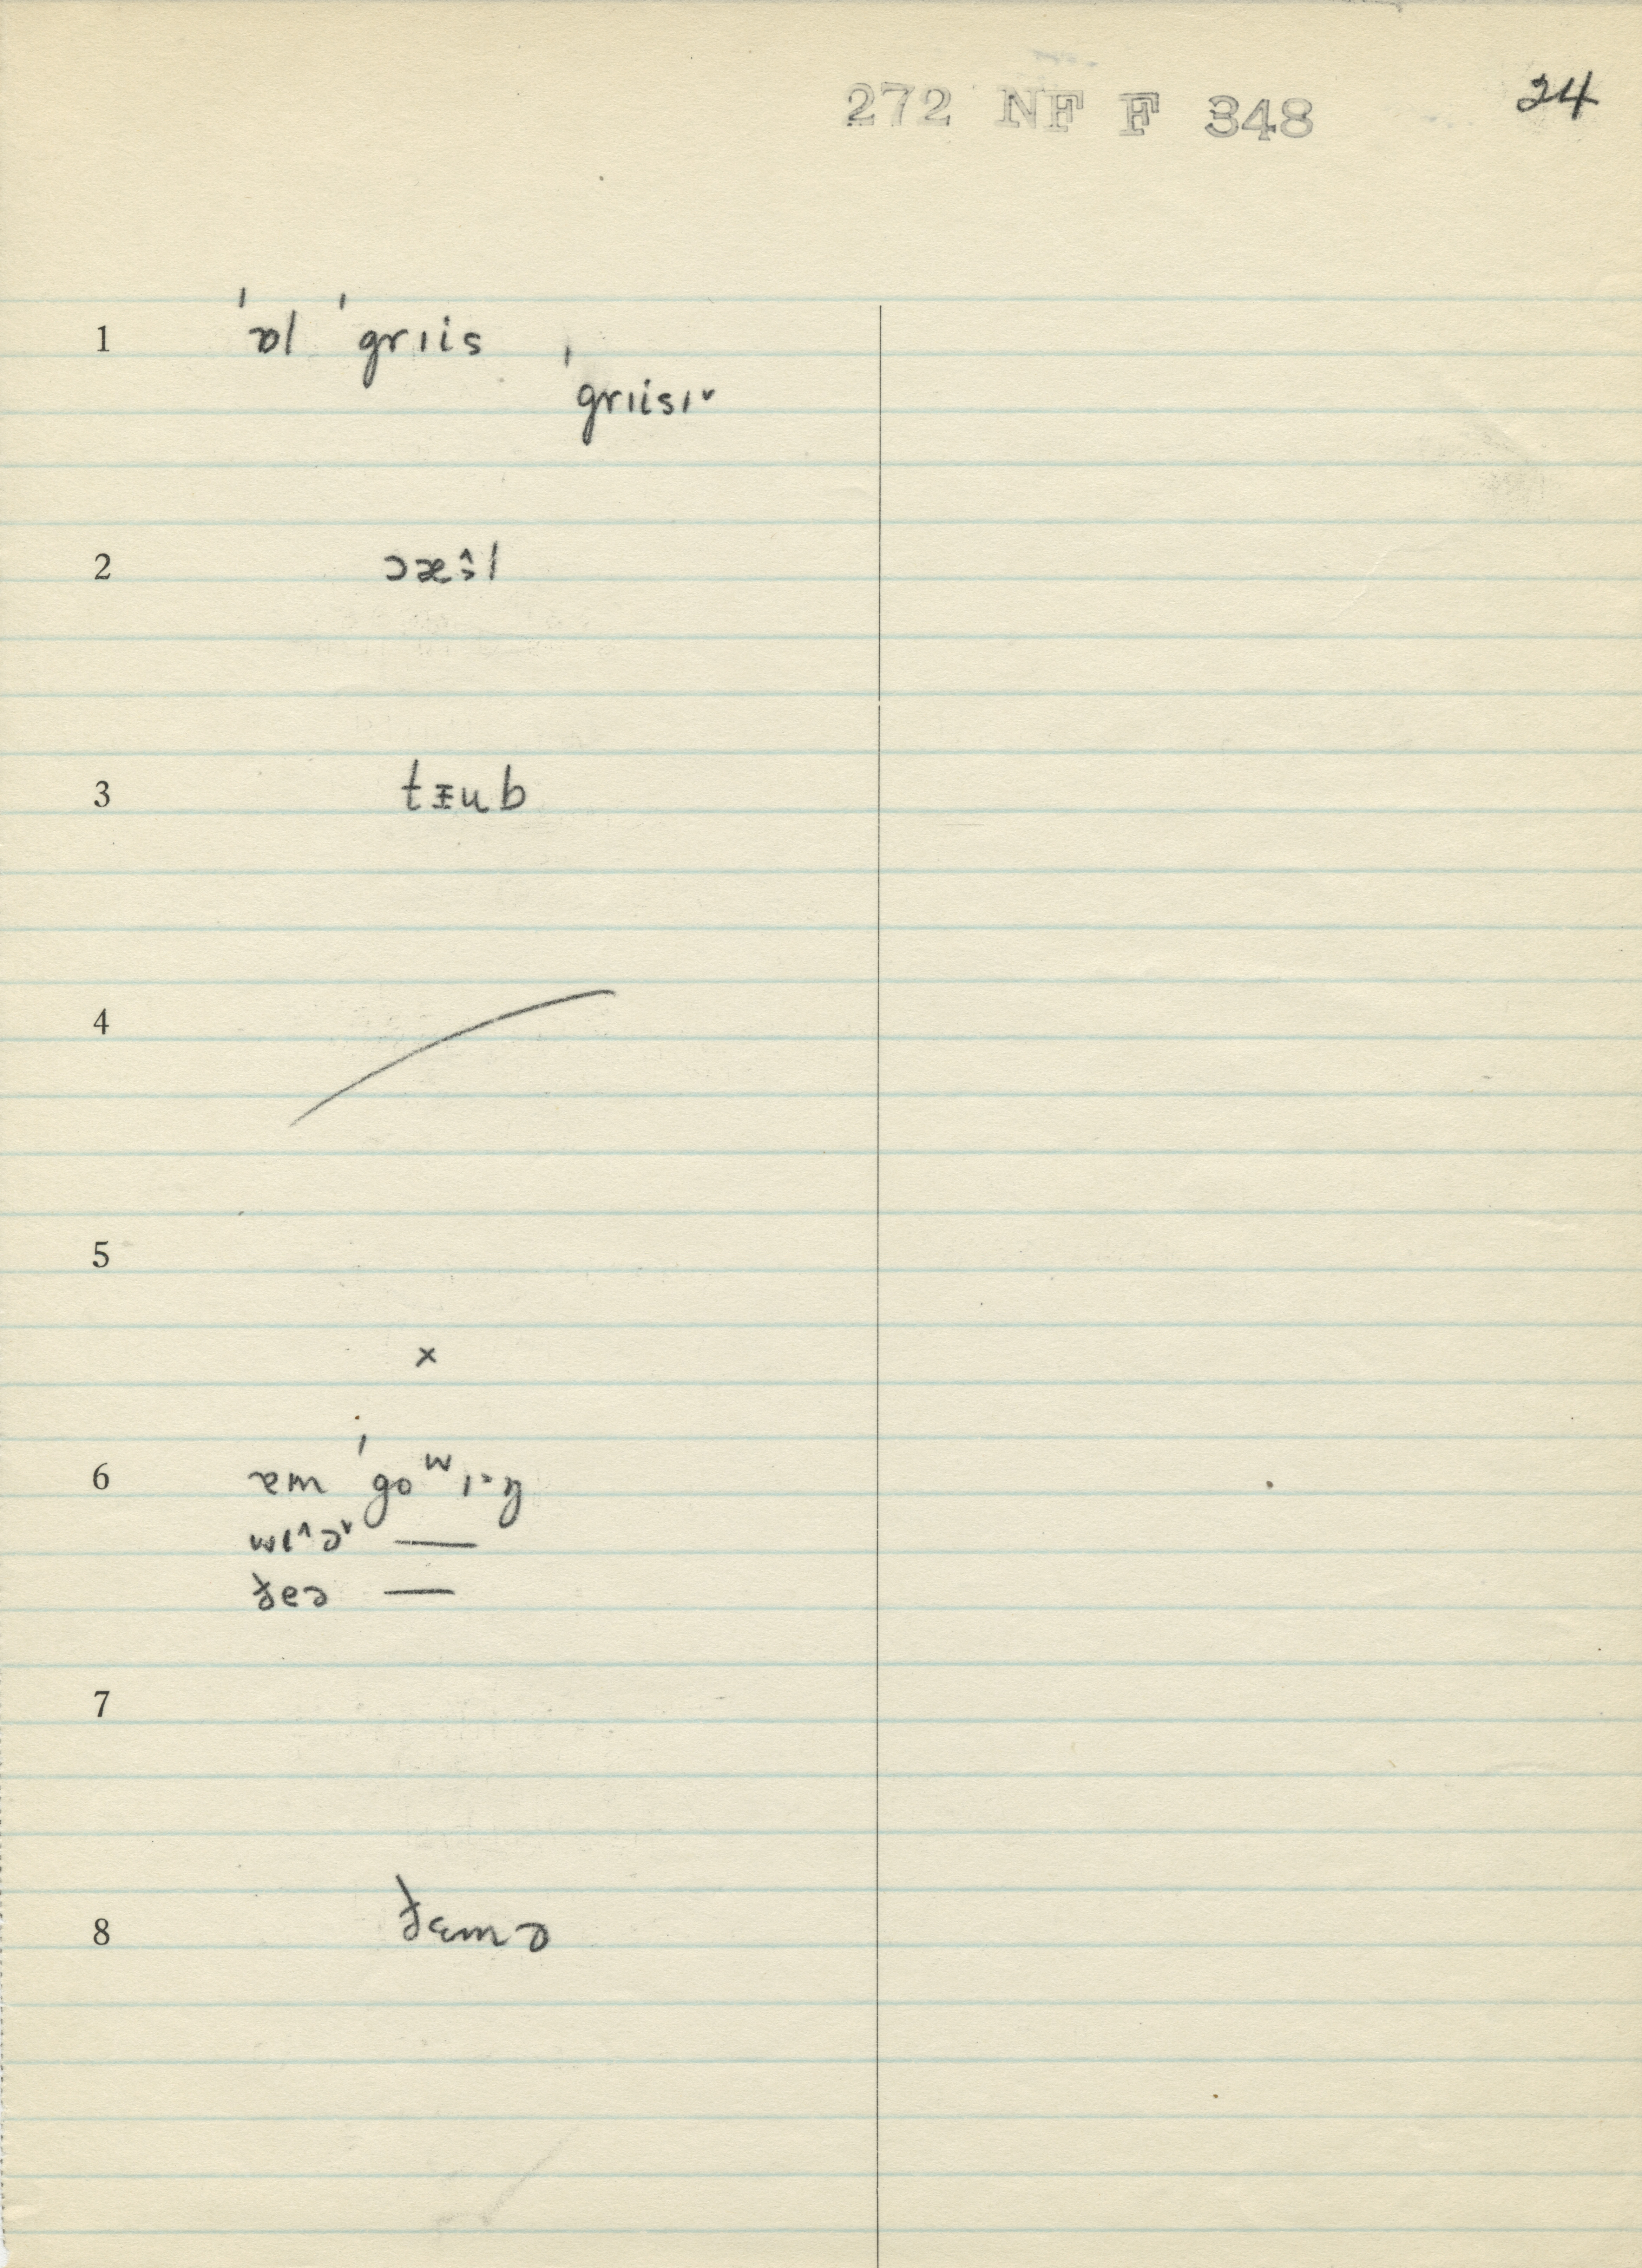 272 NF F 348
24
1 ˈɒl ˈgrɪis
ˈgrɪisɪ˅
2
3 tᵻub
4
5
×
6 ɐm ˈgoʷɪ·ŋ
wɪ^ə˅ —
ðeə —
7
8